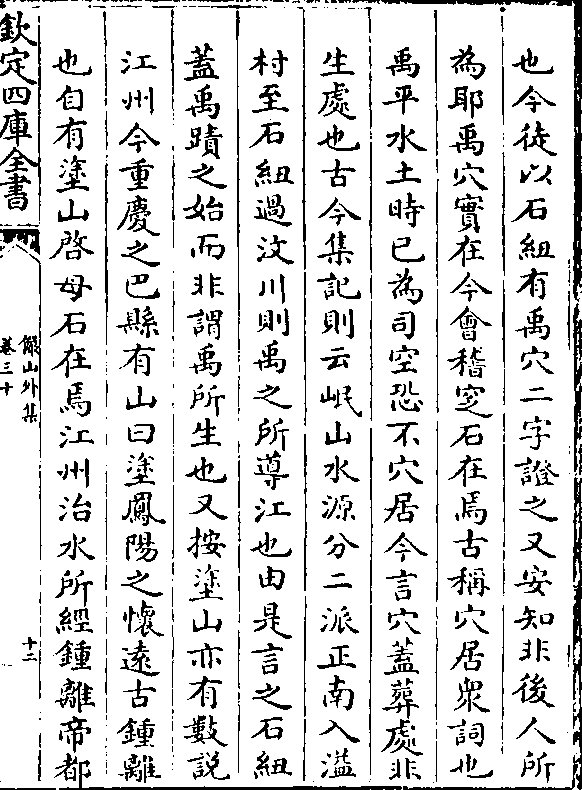 也今徒以石紐有禹穴二字證之又安知非後人所
為耶禹穴實在今會稽窆石在焉古稱穴居衆詞也
禹平水土時已為司空恐不穴居今言穴蓋葬處非
生處也古今集記則云岷山水源分二派正南入溢
村至石紐過汶川則禹之所導江也由是言之石紐
蓋禹蹟之始而非謂禹所生也又按塗山亦有數説
江州今重慶之巴縣有山曰塗鳳陽之懷遠古鍾離
也自有塗山啓母石在焉江州治水所經鍾離帝都
欽定四庫全書
儼山外集
卷三十
十二